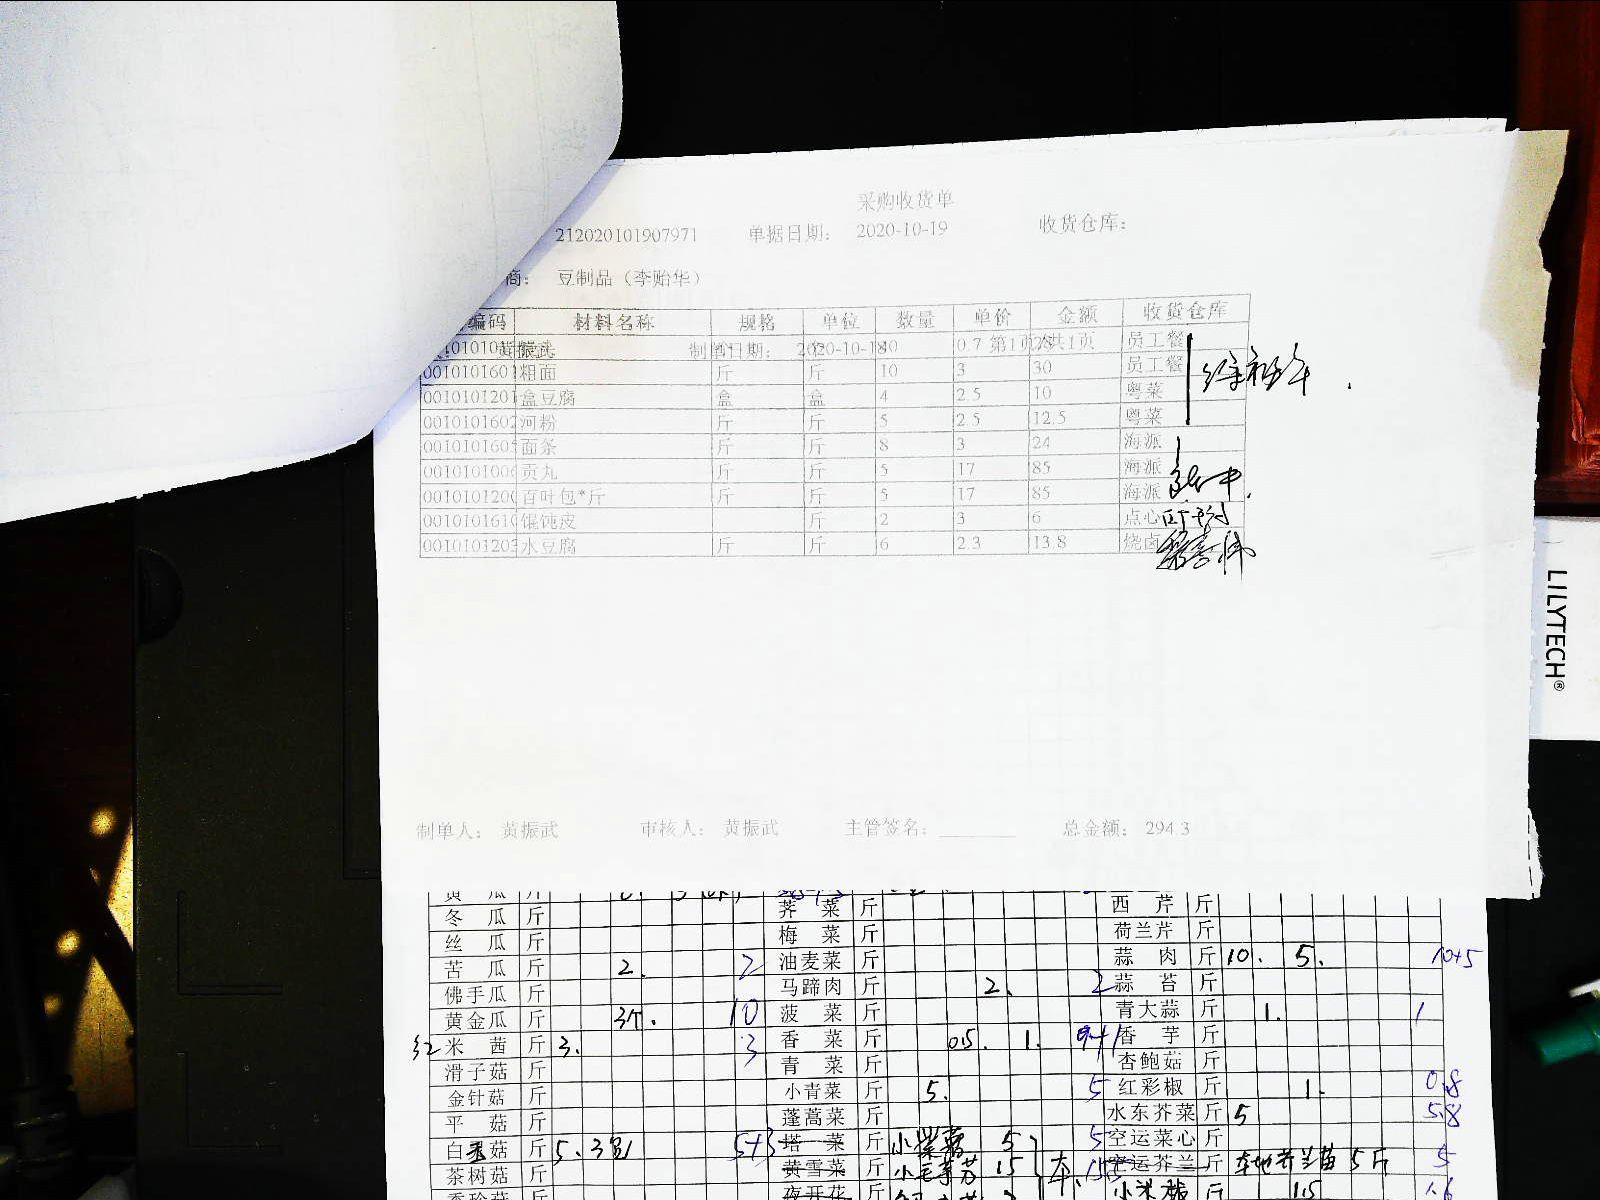 采购收货单
212020101907971 单据日期： 2020-10-19 收货仓库：
商： 豆制品（李贻华）
编码 材料名称 规格 单位 数量 单价 金额 收货仓库
黄振武 制单日期： 2020-10-18 0.7 第1页/共1页 员工餐
0010101601 粗面 斤 斤 10 3 30 员工餐
0010101201 盒豆腐 盒 盒 4 2.5 10 粤菜
0010101602 河粉 斤 斤 5 2.5 12.5 粤菜
001010160 面条 斤 斤 8 3 24 海派
001010100 贡丸 斤 斤 5 17 85 海派
001010120 百叶包*斤 斤 斤 5 17 85 海派
001010161 馄饨皮 斤 2 3 6 点心
001010120 水豆腐 斤 斤 6 2.3 13.8 烧卤
制单人： 黄振武 审核人： 黄振武 主管签名： 总金额： 294.3
LILYTECH®
黄 瓜 斤
冬 瓜 斤 荠 菜 斤 西 芹 斤
丝 瓜 斤 梅 菜 斤 荷兰芹 斤
苦 瓜 斤 2. 2 油麦菜 斤 蒜 肉 斤 10. 5. 10+5
佛手瓜 斤 马蹄肉 斤 2. 2 蒜 苔 斤
黄金瓜 斤 3个. 10 菠 菜 斤 青大蒜 斤 1. 1
红 米 茜 斤 3. 3 香 菜 斤 0.5. 1. 香 芋 斤
滑子菇 斤 青 菜 斤 杏鲍菇 斤
金针菇 斤 小青菜 斤 5. 5 红彩椒 斤 1. 0.8
平 菇 斤 蓬蒿菜 斤 水东芥菜 斤 5 5.8
白玉菇 斤 5. 5+3 塔 菜 斤 5 5 空运菜心 斤
茶树菇 斤 黄雪菜 斤 15 空运芥兰 斤 本地芥兰苗 5斤 5
夜开花 斤 小米椒 斤 1.5 1.6